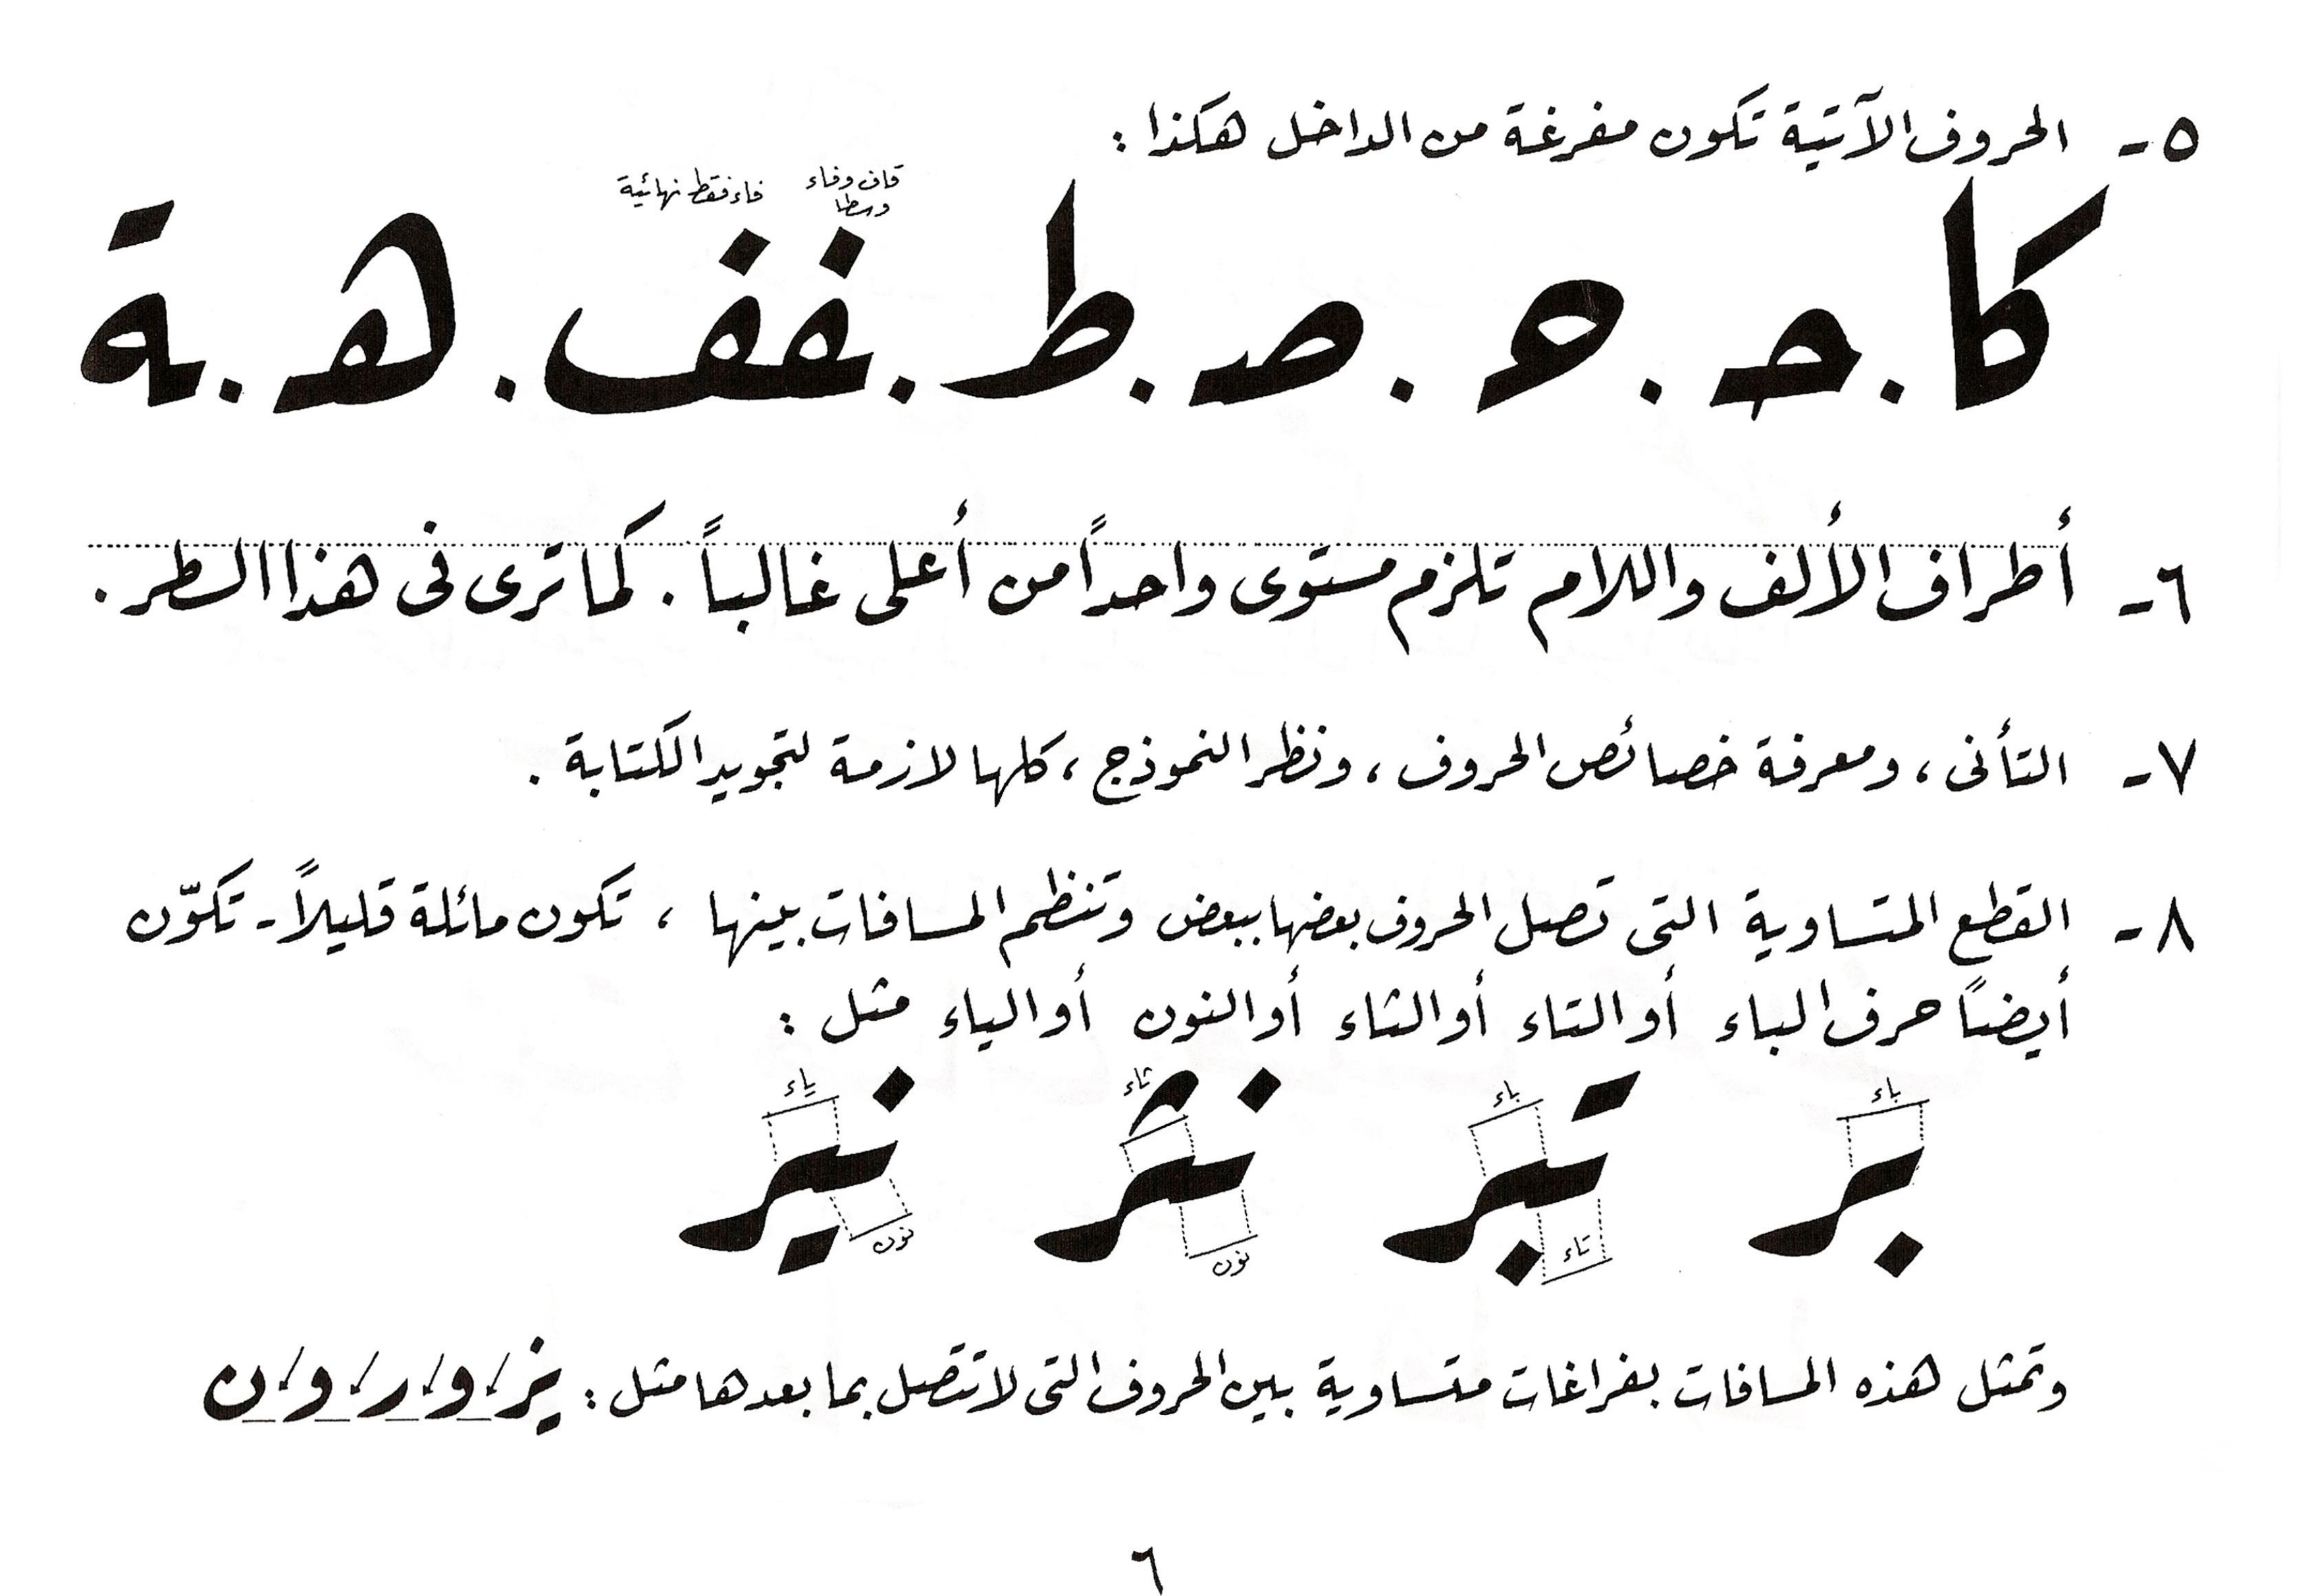 ٥- الحروف الآتية تكون مفرغة من الداخل هكذا :
قاف وفاء وسطا
فاء فقط نهائية
كا . حـ . ه . صـ . ط . ـففـ . هـ . ـة
٦- أطراف الألف واللام تلزم مستوى واحداً من أعلى غالباً . كما ترى فى هذا السطر .
٧- التأنى ، ومعرفة خصائص الحروف ، ونظر النموذج ، كلها لازمة لتجويد الكتابة .
٨- القطع المتساوية التى تصل الحروف بعضها ببعض وتنظم المسافات بينها ، تكون مائلة قليلاً - تكوّن
أيضاً حرف الباء أو التاء أو الثاء أو النون أو الياء مثل :
باء باء ثاء ياء
بر تبر نثر نير
تاء نون نون
وتمثل هذه المسافات بفراغات متساوية بين الحروف التى لا تتصل بما بعدها مثل : يزورون
٦